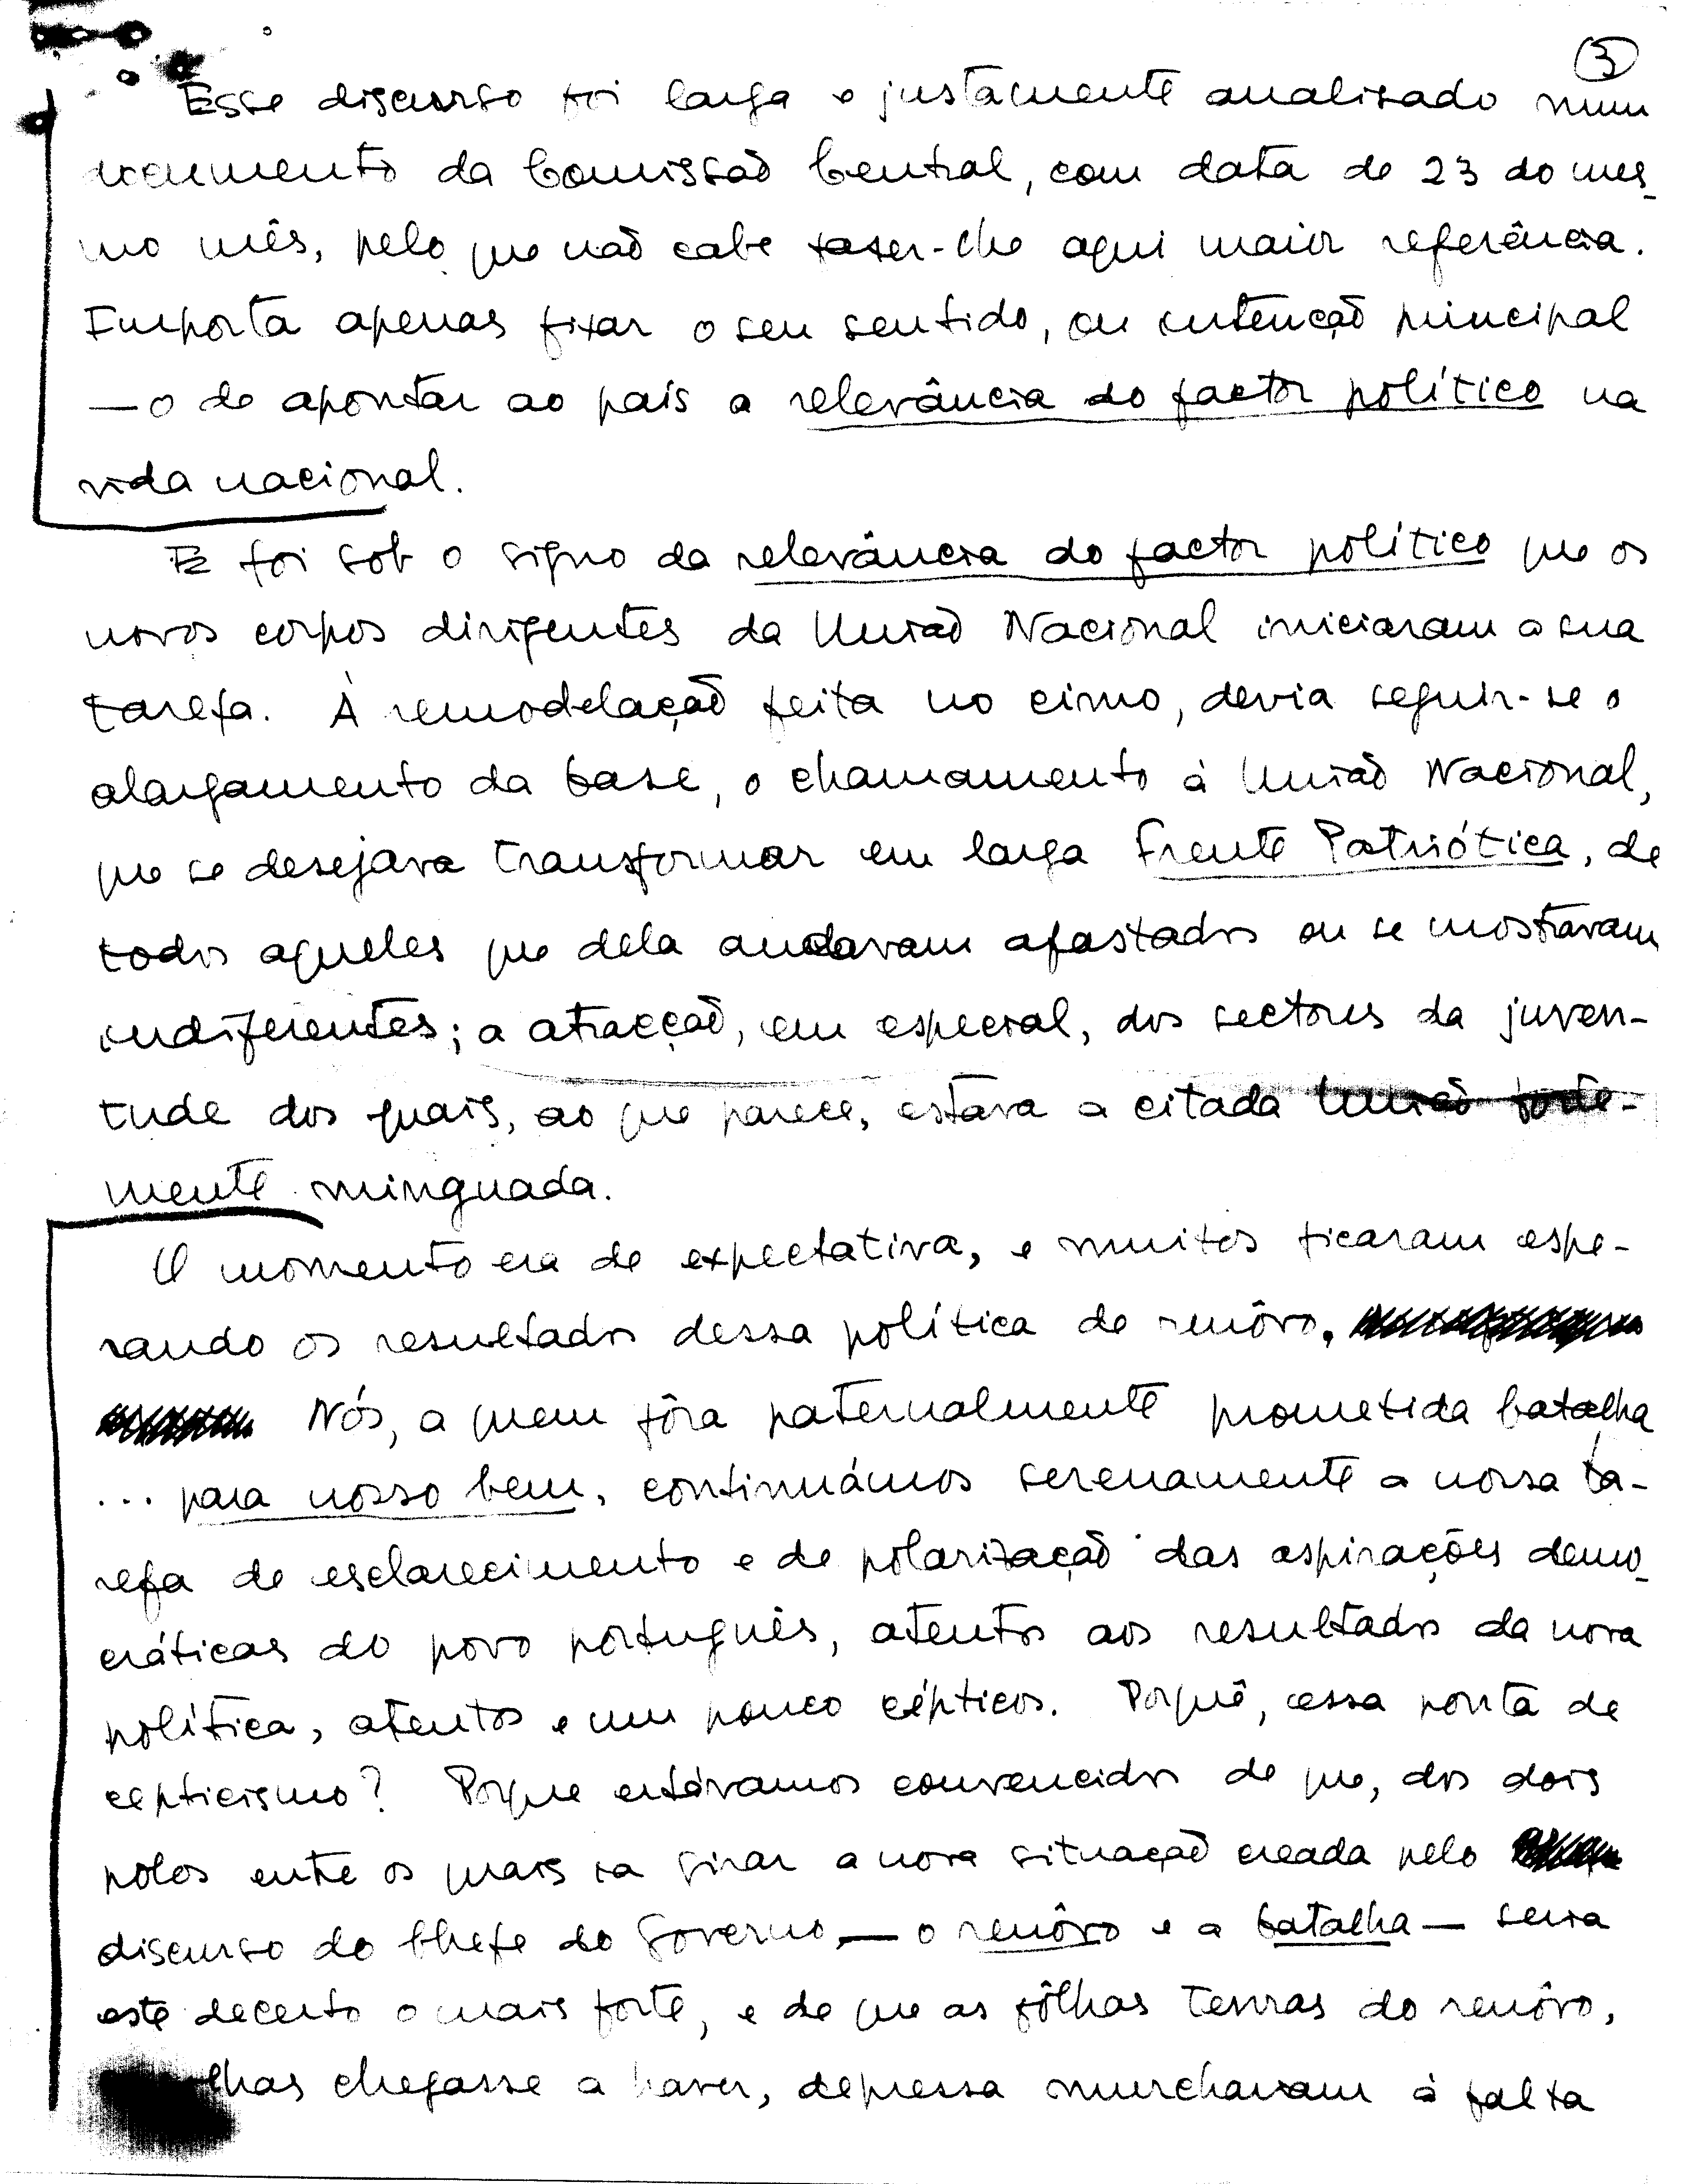 3
Esse discurso foi larga e justamente analisado num
documento da Comissão Central, com data de 23 do mes-
mo mês, pelo que não cabe fazer-lhe aqui maior referência.
Importa apenas fixar o seu sentido, ou intenção principal
— o de apontar ao país a relevância do factor político na
vida nacional.
E foi sob o signo da relevância do factor político que os
novos corpos dirigentes da União Nacional iniciaram a sua
tarefa. À remodelação feita no cimo, devia seguir-se o
alargamento da base, o chamamento à União Nacional,
que se desejava transformar em larga Frente Patriótica, de
todos aqueles que dela andavam afastados ou se mostravam
indiferentes; a atracção, em especial, dos sectores da juven-
tude dos quais, ao que parece, estava a citada União forte-
mente minguada.
O momento era de expectativa, e muitos ficaram espe-
rando os resultados dessa política de renôvo.
Nós, a quem fôra paternalmente prometida batalha
... para nosso bem, continuámos serenamente a nossa ta-
refa de esclarecimento e de polarização das aspirações demo-
cráticas do povo português, atentos aos resultados da nova
política, atentos e um pouco cépticos. Porquê, essa ponta de
cepticismo? Porque estávamos convencidos de que, dos dois
polos entre os quais ia girar a nova situação creada pelo
discurso do Chefe do Govêrno, — o renôvo e a batalha — seria
este decerto o mais forte, e de que as fôlhas tenras do renôvo,
lhas chegasse a haver, depressa murchavam à falta